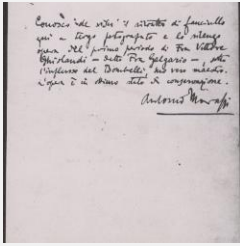 Conosco "de visu" il ritratto di fanciullo
qui a tergo fotografato e lo ritengo
opera del primo periodo di Fra Vittore
Ghislandi - detto Fra Galgario -, sotto
l'influsso del Bombelli, suo vero maestro.
L'opera è in ottimo stato di conservazione.
Antonio Morassi